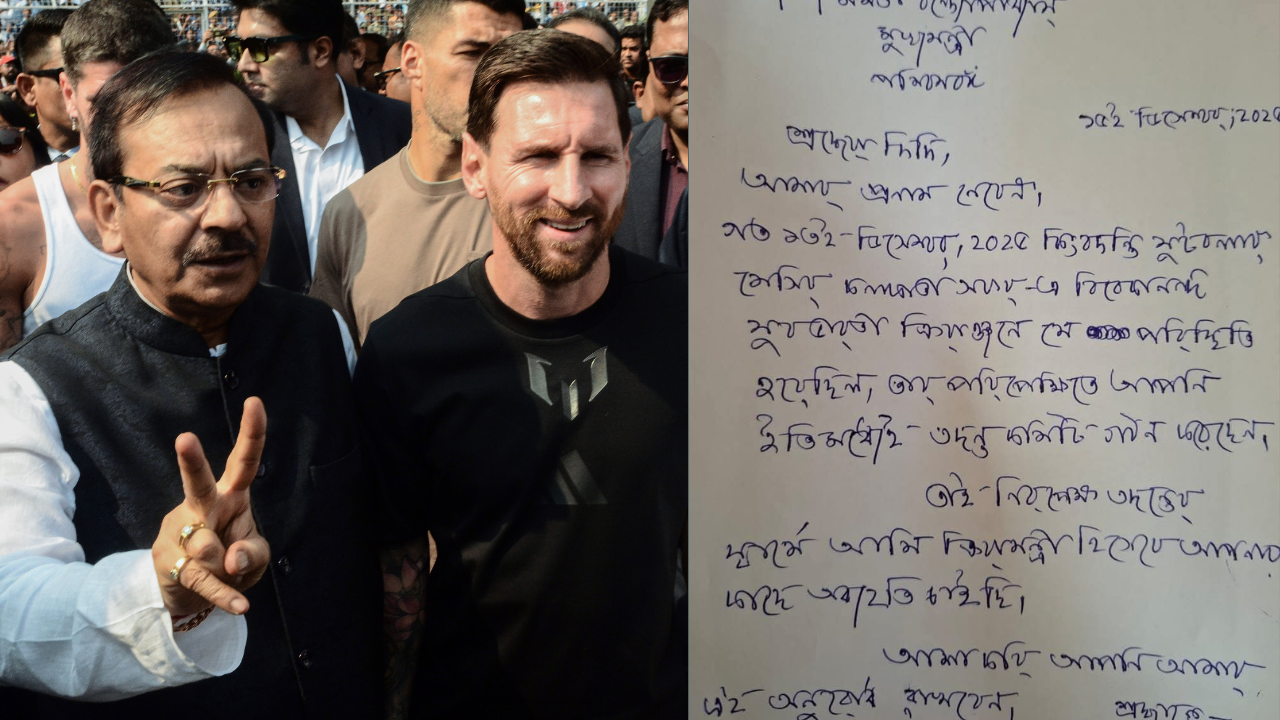 মুখ্যমন্ত্রী
পশ্চিমবঙ্গ
১৫ই ডিসেম্বর, ২০২৫
শ্রদ্ধেয় দিদি,
আমার প্রনাম নেবেন।
গত ১৩ই ডিসেম্বর, ২০২৫ কিংবদন্তি ফুটবলার
মেসির কলকাতা সফর-এ বিবেকানন্দ
যুবভারতী ক্রিড়াঙ্গনে যে পরিস্থিতি
হয়েছিল, তার পরিপ্রেক্ষিতে আপনি
ইতিমধ্যেই তদন্ত কমিটি গঠন করেছেন।
তাই নিরপেক্ষ তদন্তের
স্বার্থে আমি ক্রিড়ামন্ত্রী হিসেবে আপনার
কাছে অব্যহতি চাইছি।
আশা করি আপনি আমার
এই অনুরোধ রাখবেন।